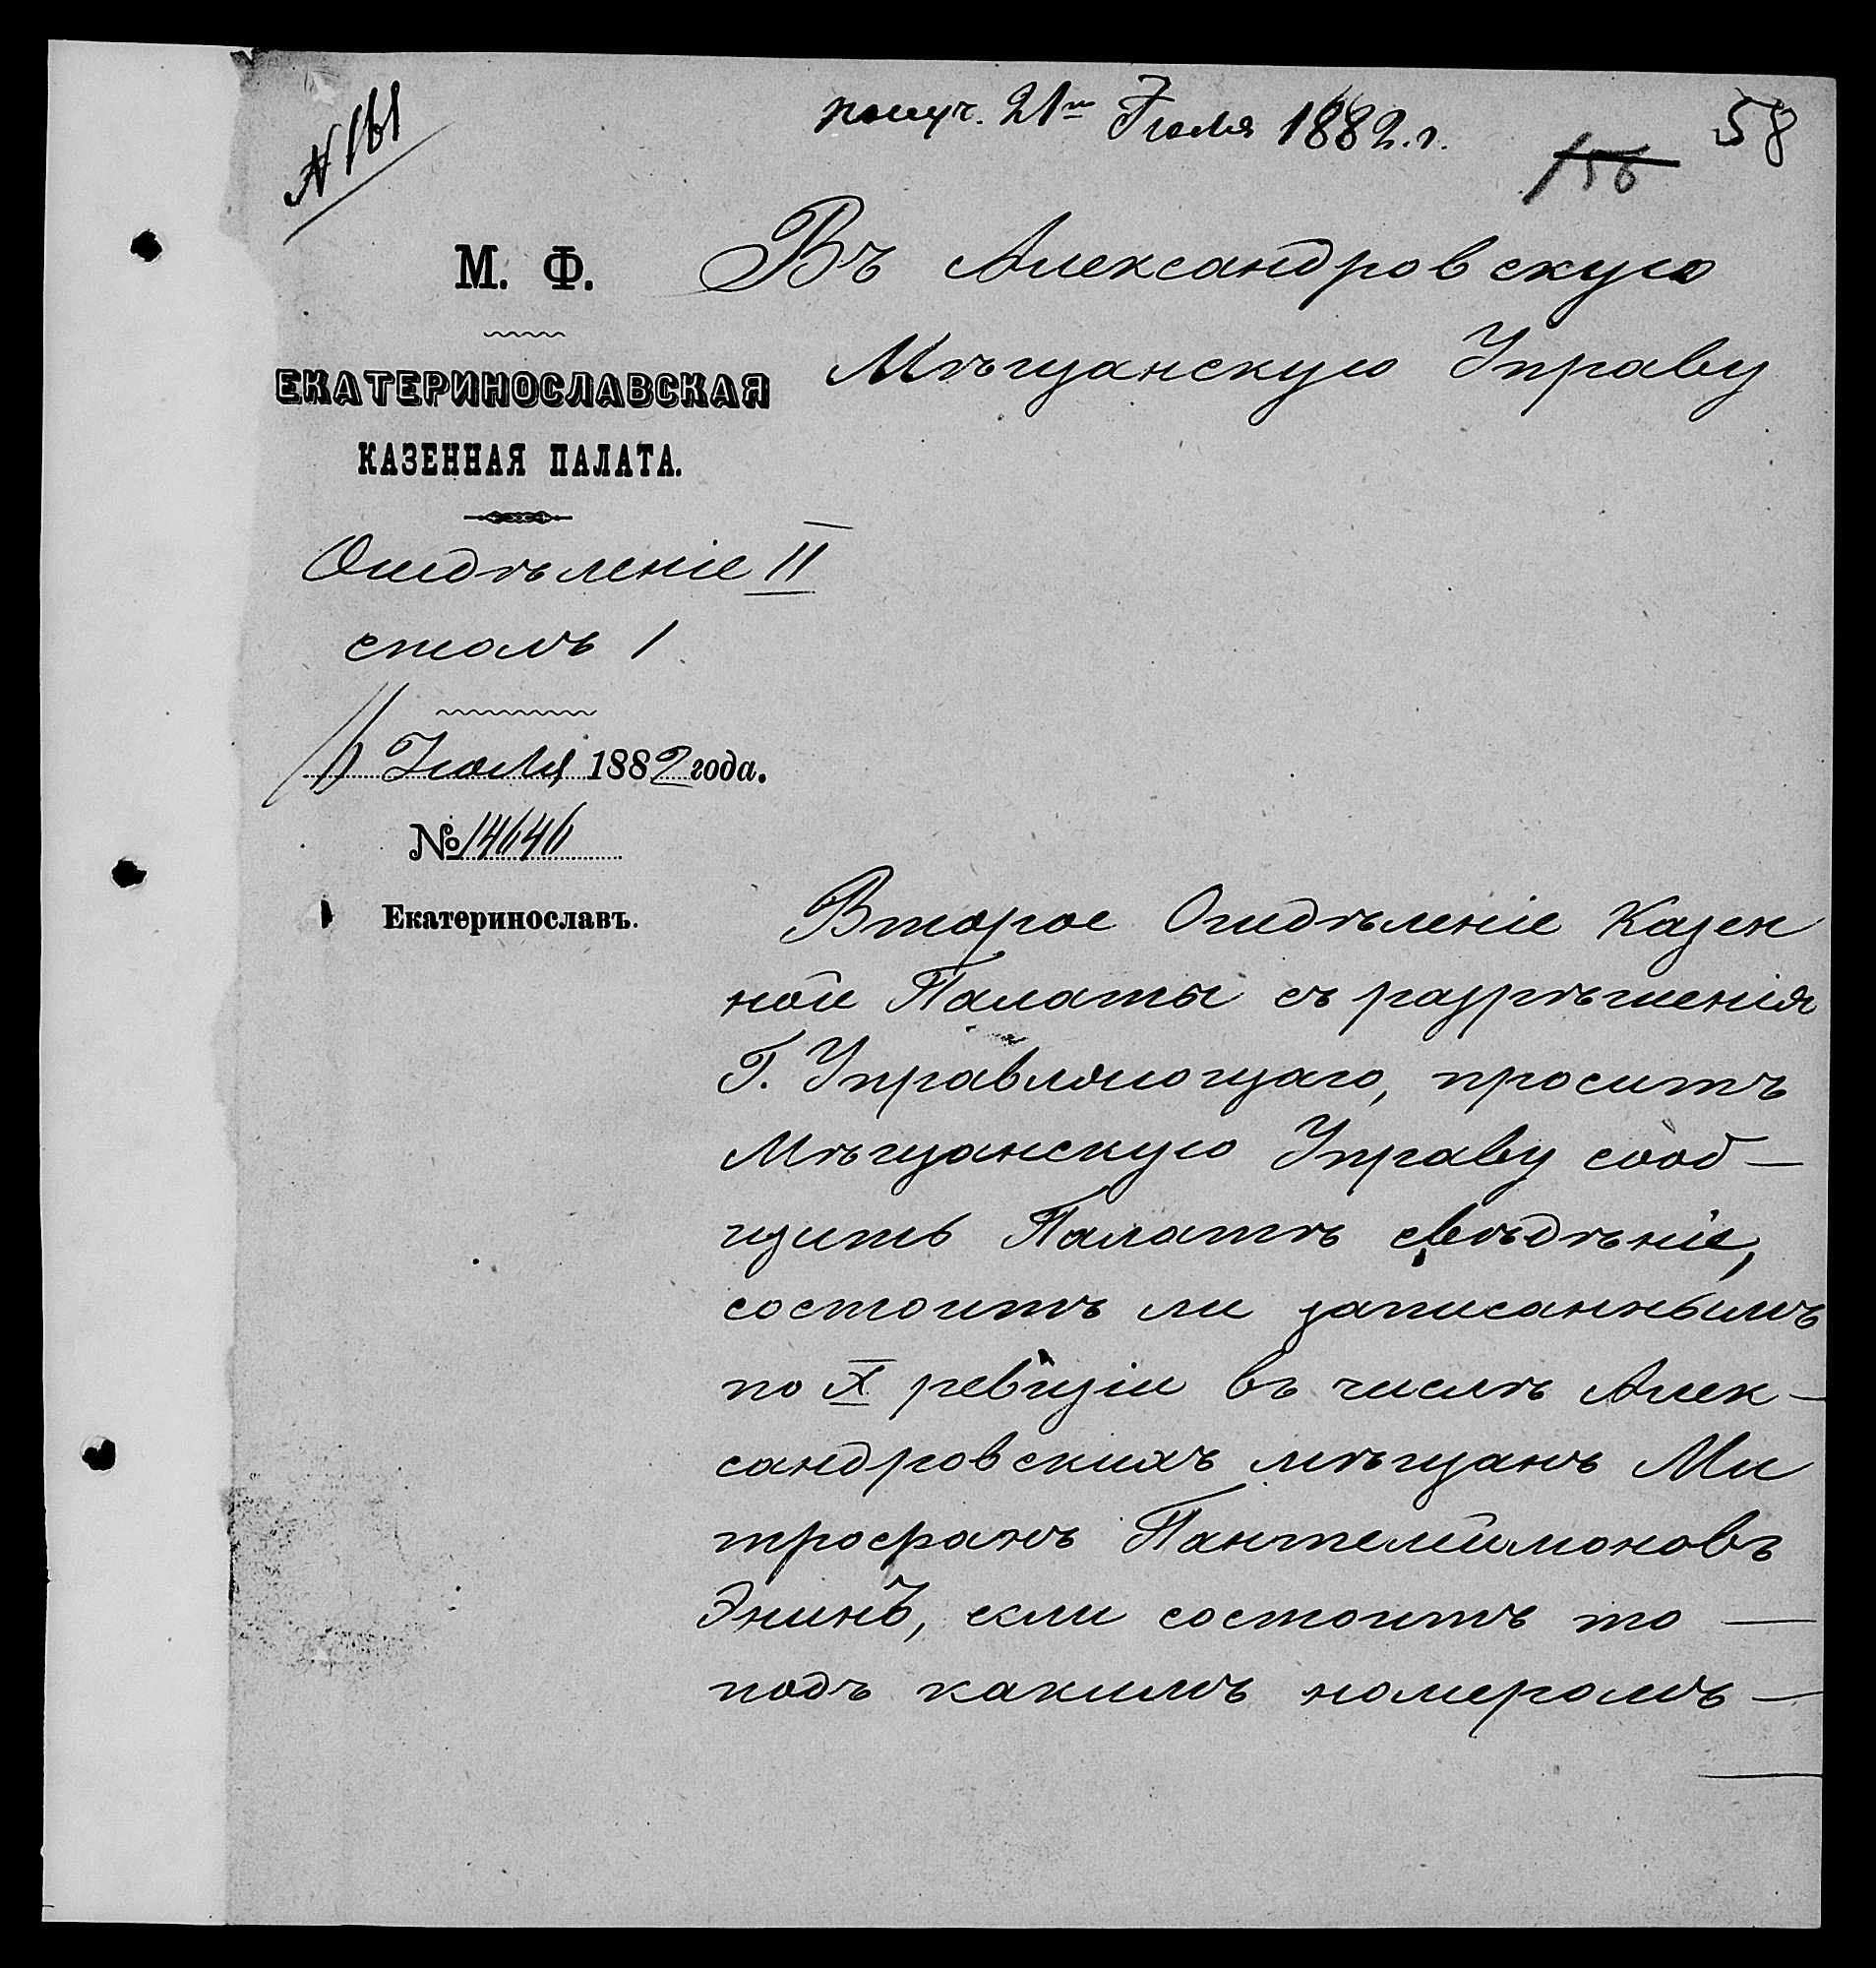 № 161
получ. 21го Іюля 1882.г.
58
156
М. Ф.
ЕКАТЕРИНОСЛАВСКАЯ
КАЗЕННАЯ ПАЛАТА.
Отдѣленіе II
столъ 1
16 Іюля 1882 года.
№ 14646
Екатеринославъ.
Въ Александровскую
Мѣщанскую Управу
Второе Отдѣленіе Казен
ной Палаты съ разрѣшенія
Г. Управляющаго, проситъ
Мѣщанскую Управу сооб–
щить Палатѣ свѣдѣніе,
состоитъ ли записаннымъ
по X ревизіи въ числѣ Алек–
сандровскихъ мѣщанъ Ми
трофанъ Пантелеймоновъ
Энинъ, если состоитъ то —
подъ какимъ номеромъ —